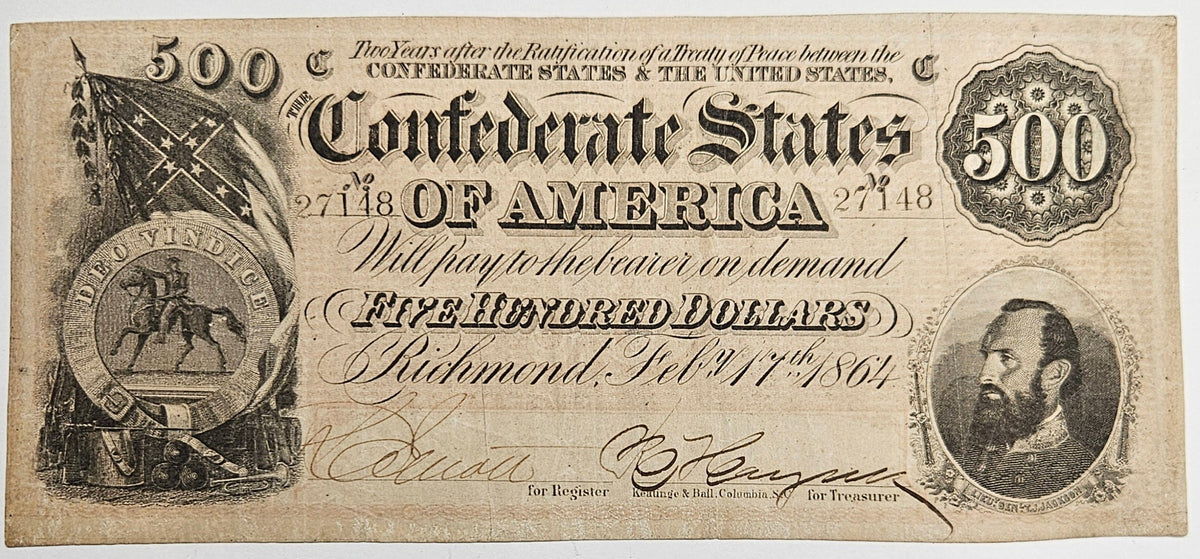 500
C Two Years after the Ratification of a Treaty of Peace between the C
CONFEDERATE STATES & THE UNITED STATES,
THE
Confederate States
500
No 27148 OF AMERICA No 27148
DEO VINDICE
Will pay to the bearer on demand
FIVE HUNDRED DOLLARS
Richmond, Feby 17th 1864
for Register Keatinge & Ball, Columbia, S.C. for Treasurer
LIEUT. GEN. T.J. JACKSON